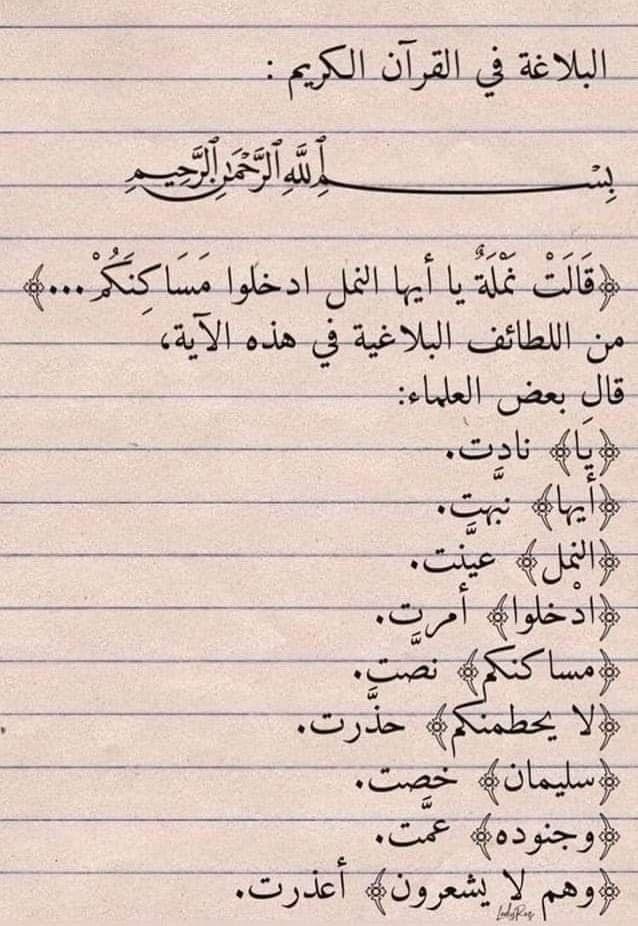 البلاغة في القرآن الكريم :
بِسْـــــــمِ ٱللَّهِ ٱلرَّحْمَٰنِ ٱلرَّحِيمِ
﴿قَالَتْ نَمْلَةٌ يا أيها النمل ادخلوا مَسَاكِنَكُمْ...﴾
من اللطائف البلاغية في هذه الآية،
قال بعض العلماء:
﴿يَا﴾ نادت.
﴿أيها﴾ نبَّهت.
﴿النمل﴾ عيَّنت.
﴿ادْخلوا﴾ أمرت.
﴿مساكنكم﴾ نصَّت.
﴿لا يحطمنكم﴾ حذَّرت.
﴿سليمان﴾ خصت.
﴿وجنوده﴾ عمَّت.
﴿وهم لا يشعرون﴾ أعذرت.
LadyRos